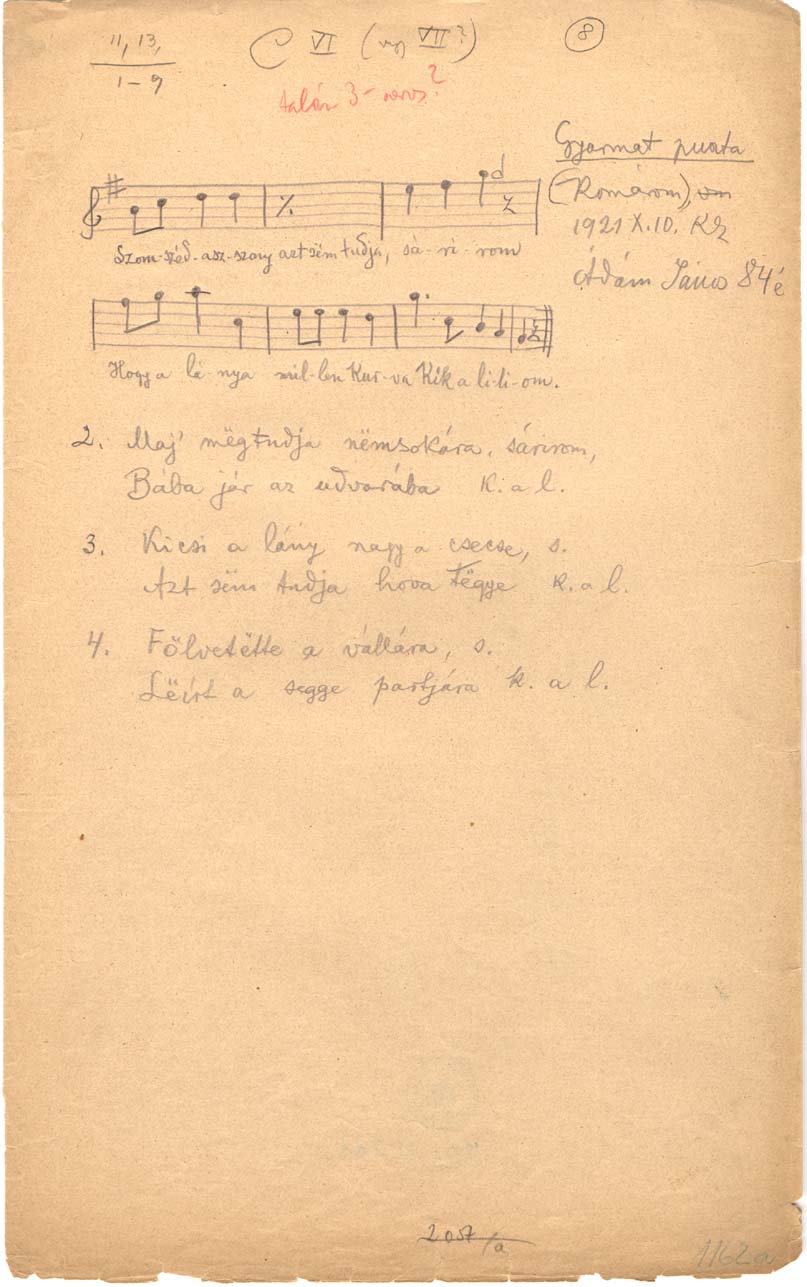 11, 13,
1-9
C VI (vagy VII?)
8
talán 3-soros?
Gyarmat puszta
(Komárom),
1921 X.10. KZ
Ádám János 84 é
Szom-széd-asz-szony azt sëm tudja, sá-ri-rom
Hogy a lá-nya mil-len Kur-va Kék a li-li-om.
2. Maj' mëgtudja nëmsokára, sárirom,
Bába jár az udvarába K. a l.
3. Kicsi a lány nagy a csecse, s.
Azt sëm tudja hova tëgye k. a l.
4. Fölvetëtte a vállára, s.
Lëírt a segge partjára k. a l.
2057/a
1162a